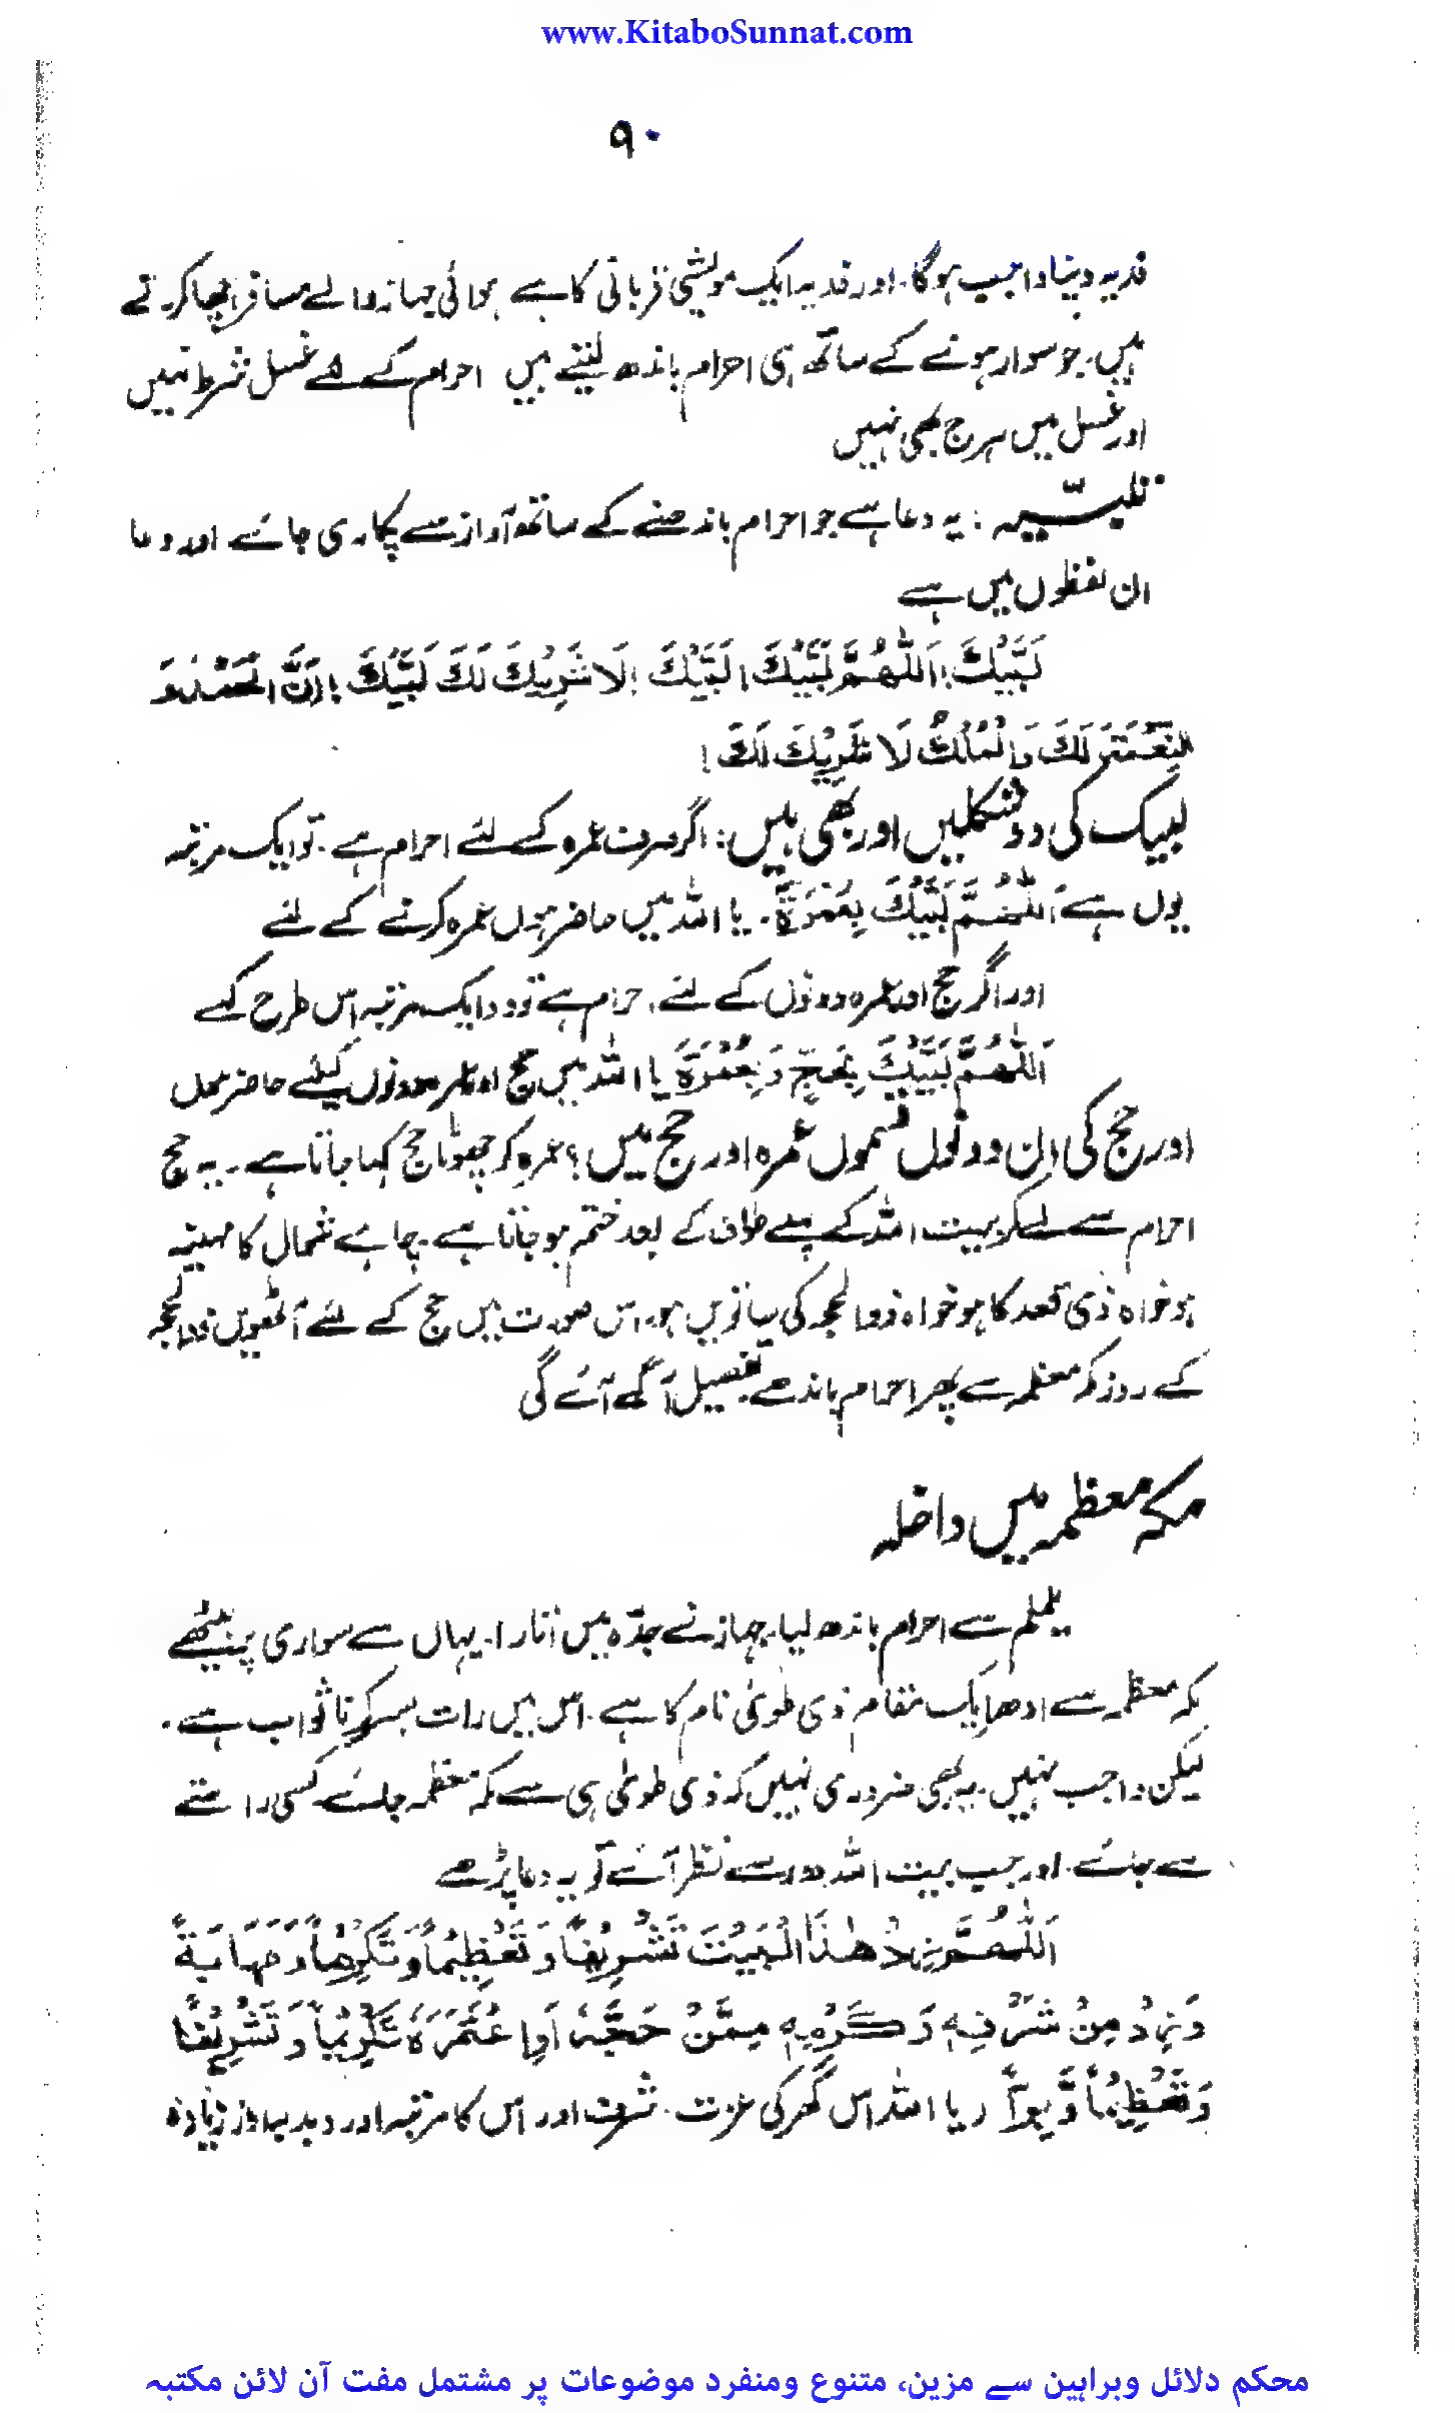 www.KitaboSunnat.com
۹۰
فدیہ دینا واجب ہوگا۔ اور فدیہ ایک مویشی قربانی کا ہے ہوائی جہاز والے مسافر اچھا کرتے
ہیں۔ جو سوار ہونے کے ساتھ ہی احرام باندھ لیتے ہیں احرام کے لئے غسل شرط نہیں
اور غسل میں ہرج بھی نہیں
تلبیّہ : یہ دعا ہے جو احرام باندھنے کے ساتھ آواز سے پکاری جائے اور دعا
ان لفظوں میں ہے
لَبَّيْكَ! اَللّٰهُمَّ لَبَّيْكَ! لَبَّيْكَ! لَا شَرِيْكَ لَكَ لَبَّيْكَ! اِنَّ الْحَمْدَ وَ
النِّعْمَتَ لَكَ وَالْمُلْكُ لَا شَرِيْكَ لَكَ!
لبیک کی دو شکلیں اور بھی ہیں : اگر صرف عمرہ کے لئے احرام ہے۔ تو ایک مرتبہ
یوں ہے اَللّٰهُمَّ لَبَّيْكَ بِعُمْرَةٍ۔ یا اللہ میں حاضر ہوں عمرہ کرنے کے لئے
اور اگر حج اور عمرہ دونوں کے لئے احرام ہے تو ایک مرتبہ اس طرح کہے
اَللّٰهُمَّ لَبَّيْكَ بِحَجٍّ وَبِعُمْرَةٍ یا اللہ میں حج اور عمرہ دونوں کیلئے حاضر ہوں
اور حج کی ان دونوں قسموں عمرہ اور حج میں؟ عمرہ کو چھوٹا حج کہا جاتا ہے۔ یہ حج
احرام سے لے کر بیت اللہ کے پہلے طواف کے بعد ختم ہو جاتا ہے۔ چاہے شوال کا مہینہ
ہو خواہ ذی قعد کا ہو خواہ ذوالحجہ کی ساتویں ہو۔ اس صورت میں حج کے لئے آٹھویں ذوالحجہ
کے روز مکہ معظمہ سے پھر احرام باندھے۔ تفصیل آگے آئے گی
مکہ معظمہ میں داخلہ
یلملم سے احرام باندھ لیا۔ جہاز نے جدّہ میں اتارا۔ یہاں سے سواری پر بیٹھے
مکہ معظمہ سے ادھر ایک مقام ذی طویٰ نام کا ہے۔ اس میں رات بسر کرنا ثواب ہے۔
لیکن واجب نہیں۔ یہ بھی ضروری نہیں کہ ذی طویٰ ہی سے مکہ معظمہ جائے کسی راستے
سے جائے۔ اور جب بیت اللہ دور سے نظر آئے تو یہ دعا پڑھے
اَللّٰهُمَّ زِدْ هٰذَا الْبَيْتَ تَشْرِيْفًا وَ تَعْظِيْمًا وَ تَكْرِيْمًا وَ مَهَابَةً
وَ زِدْ مِنْ شَرَفِهٖ وَ كَرَمِهٖ مِمَّنْ حَجَّهٗ اَوِ اعْتَمَرَهٗ تَكْرِيْمًا وَ تَشْرِيْفًا
وَ تَعْظِيْمًا وَّ بِرًّا ۔ یا اللہ اس گھر کی عزت۔ شرف اور اس کا مرتبہ اور دبدبہ اور زیادہ
محکم دلائل وبراہین سے مزین، متنوع ومنفرد موضوعات پر مشتمل مفت آن لائن مکتبہ